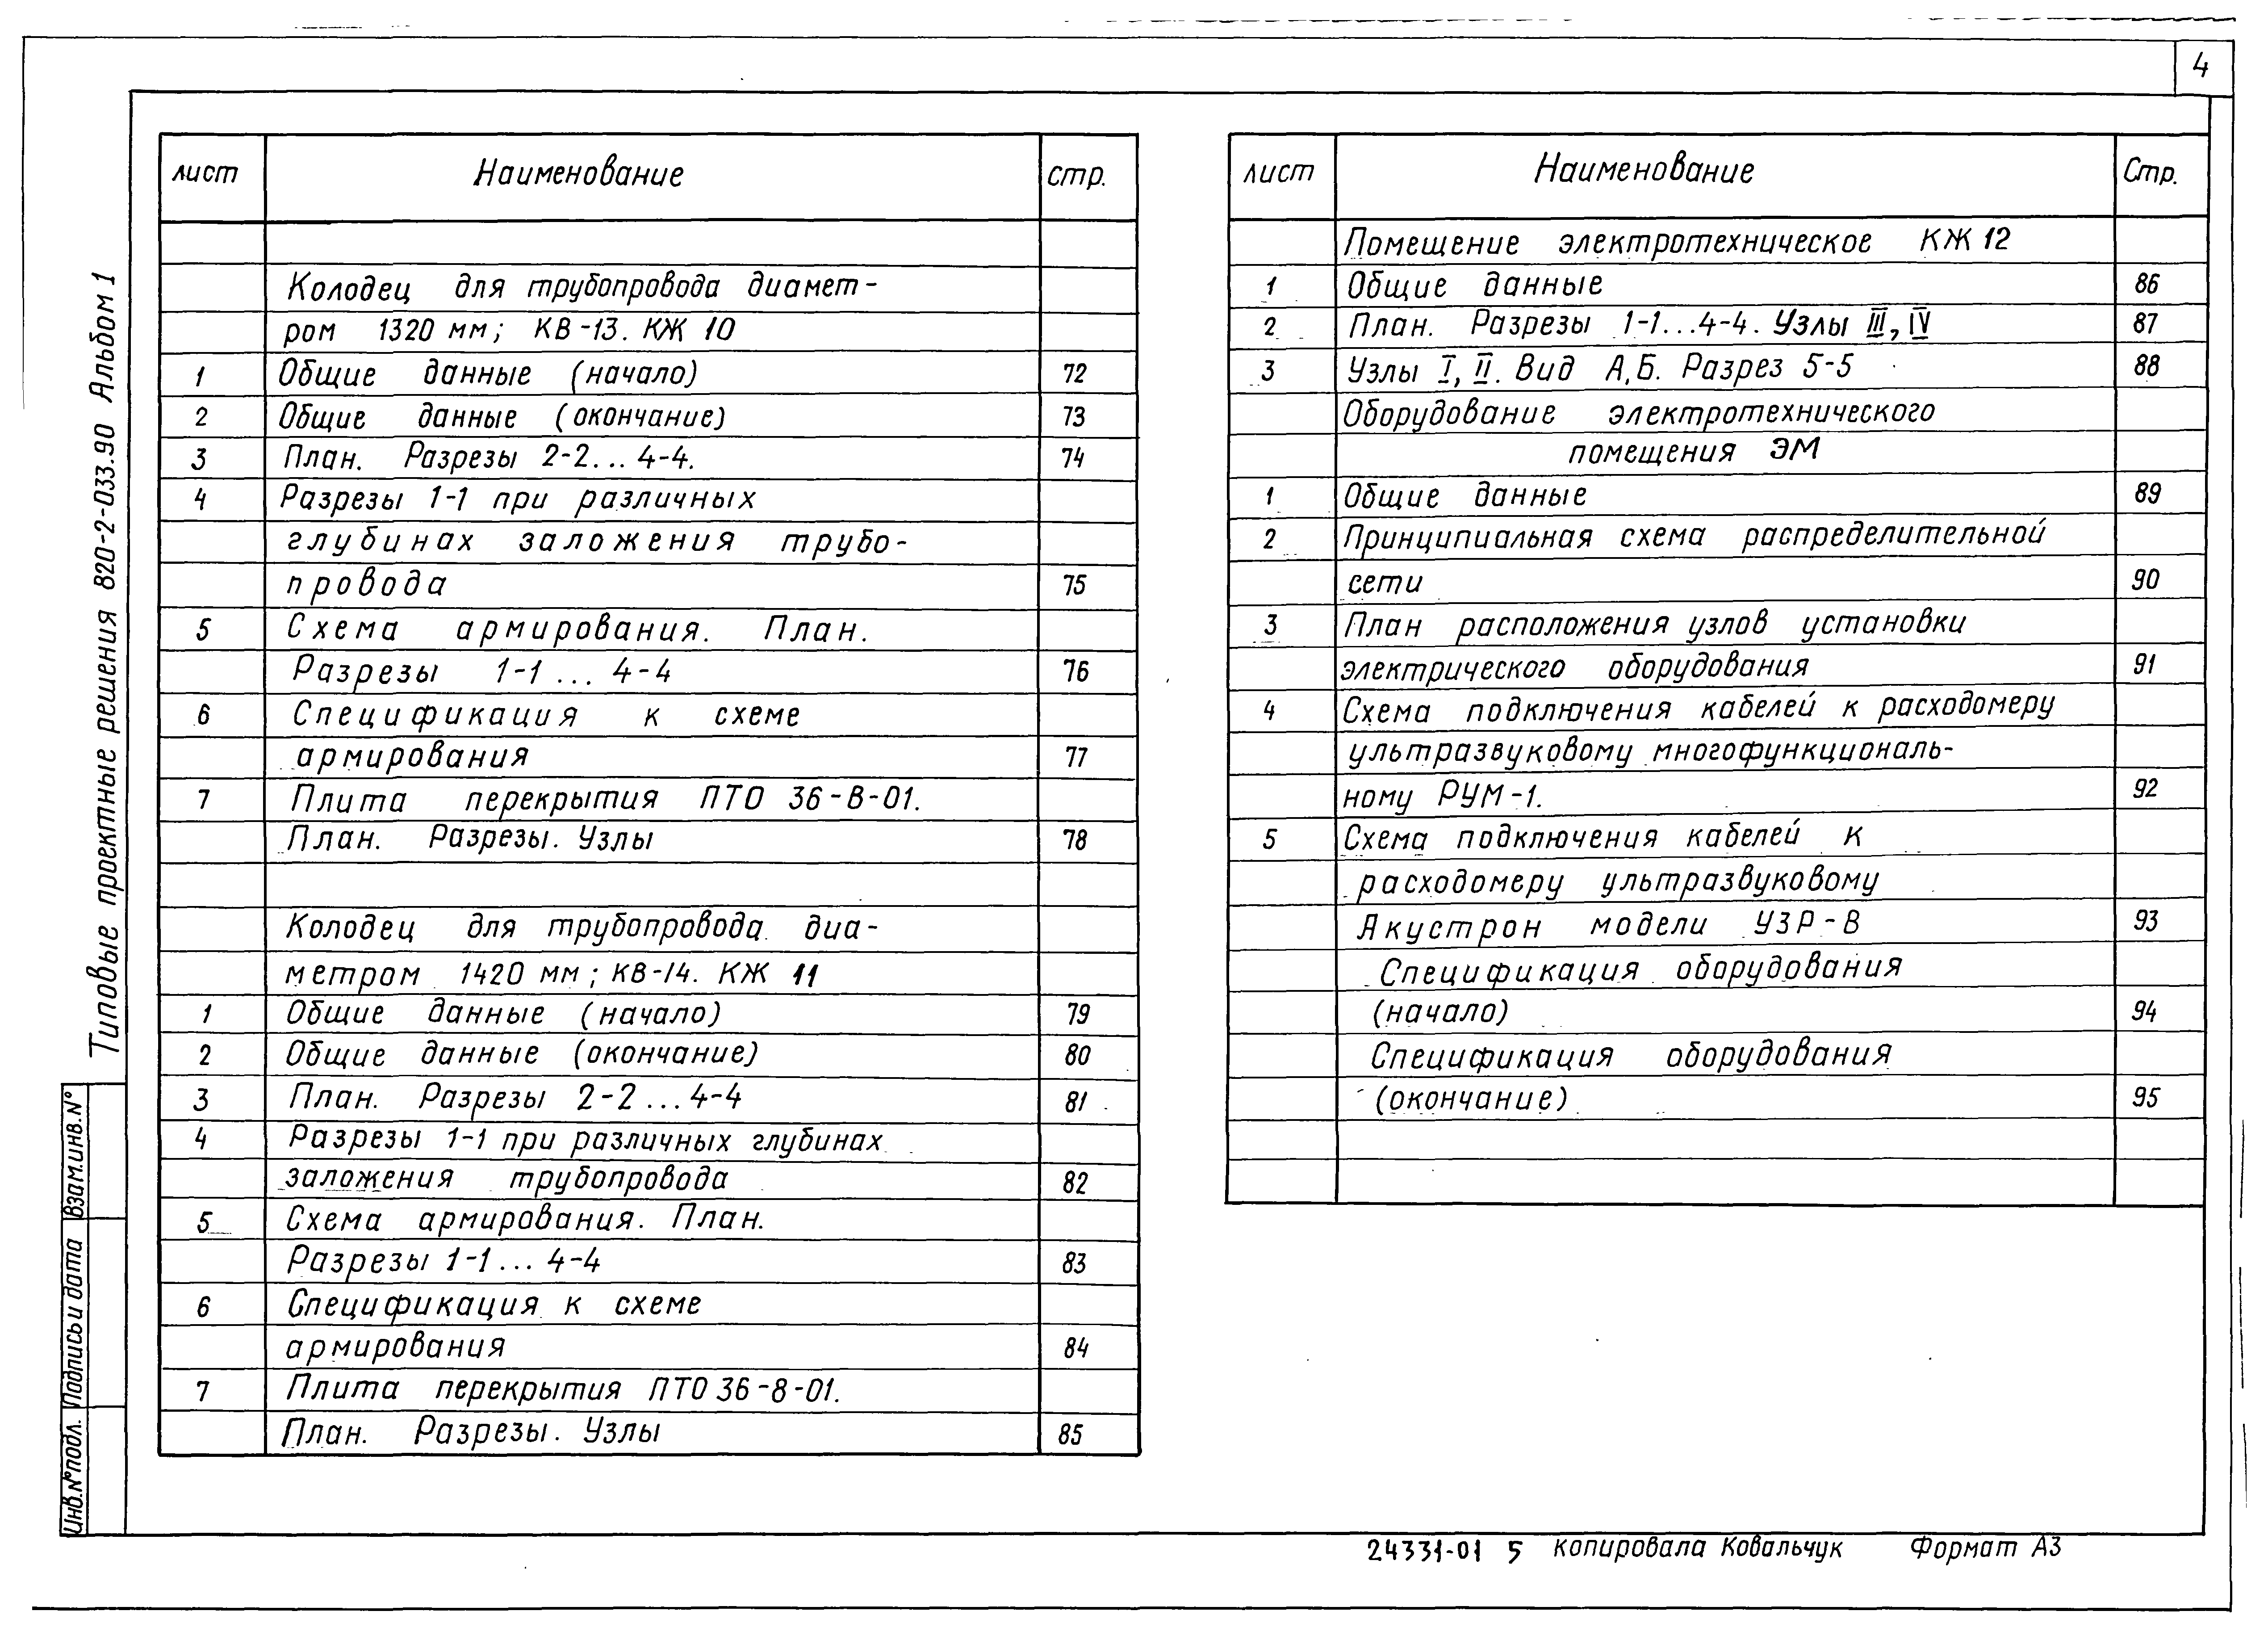 4
лист Наименование стр.
Колодец для трубопровода диамет-
ром 1320 мм; КВ-13. КЖ 10
1 Общие данные (начало) 72
2 Общие данные (окончание) 73
3 План. Разрезы 2-2... 4-4. 74
4 Разрезы 1-1 при различных
глубинах заложения трубо-
провода 75
5 Схема армирования. План.
Разрезы 1-1 ... 4-4 76
6 Спецификация к схеме
армирования 77
7 Плита перекрытия ПТО 36-В-01.
План. Разрезы. Узлы 78
Колодец для трубопровода диа-
метром 1420 мм; КВ-14. КЖ 11
1 Общие данные (начало) 79
2 Общие данные (окончание) 80
3 План. Разрезы 2-2 ... 4-4 81
4 Разрезы 1-1 при различных глубинах
заложения трубопровода 82
5 Схема армирования. План.
Разрезы 1-1... 4-4 83
6 Спецификация к схеме
армирования 84
7 Плита перекрытия ПТО 36-8-01.
План. Разрезы. Узлы 85
лист Наименование Стр.
Помещение электротехническое КЖ 12
1 Общие данные 86
2 План. Разрезы 1-1...4-4. Узлы III, IV 87
3 Узлы I, II. Вид А,Б. Разрез 5-5 88
Оборудование электротехнического
помещения ЭМ
1 Общие данные 89
2 Принципиальная схема распределительной
сети 90
3 План расположения узлов установки
электрического оборудования 91
4 Схема подключения кабелей к расходомеру
ультразвуковому многофункциональ-
ному РУМ-1. 92
5 Схема подключения кабелей к
расходомеру ультразвуковому
Акустрон модели УЗР-В 93
Спецификация оборудования
(начало) 94
Спецификация оборудования
(окончание) 95
Типовые проектные решения 820-2-033.90 Альбом 1
Взам.инв.№
Подпись и дата
Инв.№ подл.
24331-01 5 копировала Ковальчук Формат А3